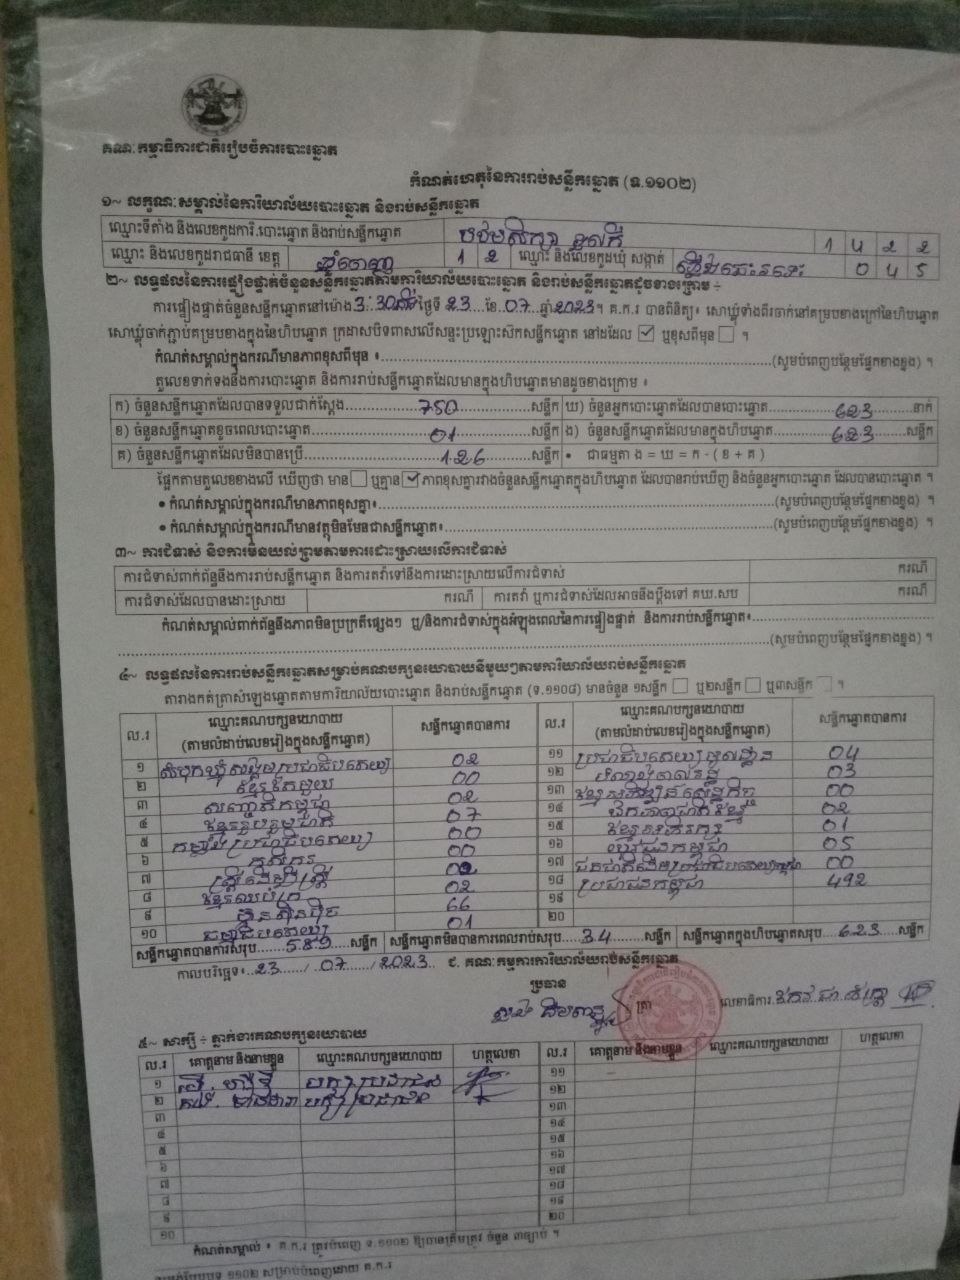 គណៈកម្មាធិការជាតិរៀបចំការបោះឆ្នោត
កំណត់ហេតុនៃការរាប់សន្លឹកឆ្នោត (ទ.១១០២)
១~ លក្ខណៈសម្គាល់នៃការិយាល័យបោះឆ្នោត និងរាប់សន្លឹកឆ្នោត
ឈ្មោះទីតាំង និងលេខកូដការិ.បោះឆ្នោត និងរាប់សន្លឹកឆ្នោត បឋមសិក្សា 1 4 2 2
ឈ្មោះ និងលេខកូដរាជធានី ខេត្ត ភ្នំពេញ 1 2 ឈ្មោះ និងលេខកូដឃុំ សង្កាត់ 0 4 5
២~ លទ្ធផលនៃការផ្ទៀងផ្ទាត់ចំនួនសន្លឹកឆ្នោតតាមការិយាល័យបោះឆ្នោត និងរាប់សន្លឹកឆ្នោតដូចខាងក្រោម ÷
ការផ្ទៀងផ្ទាត់ចំនួនសន្លឹកឆ្នោតនៅម៉ោង 3:30 ថ្ងៃទី 23 ខែ 07 ឆ្នាំ 2023។ គ.ក.រ បានពិនិត្យ៖ សោឃ្លុំទាំងពីរចាក់នៅគម្របខាងក្រៅនៃហិបឆ្នោត
សោឃ្លុំចាក់ភ្ជាប់គម្របខាងក្នុងនៃហិបឆ្នោត ក្រដាសបិទពាសលើសន្ទះប្រឡោះស៊កសន្លឹកឆ្នោត នៅដដែល ☑ ឬខុសពីមុន ☐ ។
កំណត់សម្គាល់ក្នុងករណីមានភាពខុសពីមុន ៖........(សូមបំពេញបន្ថែមផ្នែកខាងខ្នង) ។
តួលេខទាក់ទងនឹងការបោះឆ្នោត និងការរាប់សន្លឹកឆ្នោតដែលមានក្នុងហិបឆ្នោតមានដូចខាងក្រោម ៖
ក) ចំនួនសន្លឹកឆ្នោតដែលបានទទួលជាក់ស្តែង........750........សន្លឹក ឃ) ចំនួនអ្នកបោះឆ្នោតដែលបានបោះឆ្នោត........623........នាក់
ខ) ចំនួនសន្លឹកឆ្នោតខូចពេលបោះឆ្នោត........01........សន្លឹក ង) ចំនួនសន្លឹកឆ្នោតដែលមានក្នុងហិបឆ្នោត........623........សន្លឹក
គ) ចំនួនសន្លឹកឆ្នោតដែលមិនបានប្រើ........126........សន្លឹក • ជាធម្មតា ង = ឃ = ក - ( ខ + គ )
ផ្អែកតាមតួលេខខាងលើ ឃើញថា មាន ☐ ឬគ្មាន ☑ ភាពខុសគ្នារវាងចំនួនសន្លឹកឆ្នោតក្នុងហិបឆ្នោត ដែលបានរាប់ឃើញ និងចំនួនអ្នកបោះឆ្នោត ដែលបានបោះឆ្នោត ។
• កំណត់សម្គាល់ក្នុងករណីមានភាពខុសគ្នា៖........(សូមបំពេញបន្ថែមផ្នែកខាងខ្នង) ។
• កំណត់សម្គាល់ក្នុងករណីមានវត្ថុមិនមែនជាសន្លឹកឆ្នោត៖........(សូមបំពេញបន្ថែមផ្នែកខាងខ្នង) ។
៣~ ការជំទាស់ និងការមិនយល់ព្រមតាមការដោះស្រាយលើការជំទាស់
ការជំទាស់ពាក់ព័ន្ធនឹងការរាប់សន្លឹកឆ្នោត និងការតវ៉ាទៅនឹងការដោះស្រាយលើការជំទាស់ ករណី
ការជំទាស់ដែលបានដោះស្រាយ ករណី ការតវ៉ា ឬការជំទាស់ដែលអាចនឹងប្តឹងទៅ គឃ.សប ករណី
កំណត់សម្គាល់ពាក់ព័ន្ធនឹងភាពមិនប្រក្រតីផ្សេងៗ ឬ/និងការជំទាស់ក្នុងអំឡុងពេលនៃការផ្ទៀងផ្ទាត់ និងការរាប់សន្លឹកឆ្នោត៖........
........(សូមបំពេញបន្ថែមផ្នែកខាងខ្នង) ។
៤~ លទ្ធផលនៃការរាប់សន្លឹកឆ្នោតសម្រាប់គណបក្សនយោបាយនីមួយៗតាមការិយាល័យរាប់សន្លឹកឆ្នោត
តារាងកត់ត្រាសំឡេងឆ្នោតតាមការិយាល័យបោះឆ្នោត និងរាប់សន្លឹកឆ្នោត (ទ.១១០៨) មានចំនួន ១សន្លឹក ☐ ឬ២សន្លឹក ☐ ឬ៣សន្លឹក ☐ ។
ល.រ ឈ្មោះគណបក្សនយោបាយ (តាមលំដាប់លេខរៀងក្នុងសន្លឹកឆ្នោត) សន្លឹកឆ្នោតបានការ ល.រ ឈ្មោះគណបក្សនយោបាយ (តាមលំដាប់លេខរៀងក្នុងសន្លឹកឆ្នោត) សន្លឹកឆ្នោតបានការ
១ សំបុកឃ្មុំសង្គមប្រជាធិបតេយ្យ 02 ១១ ប្រជាធិបតេយ្យមូលដ្ឋាន 04
២ ខ្មែរតែមួយ 00 ១២ 03
៣ សញ្ជាតិកម្ពុជា 02 ១៣ ខ្មែរអភិវឌ្ឍន៍សេដ្ឋកិច្ច 00
៤ ខ្មែររួបរួមជាតិ 07 ១៤ ឯកភាពជាតិខ្មែរ 02
៥ កម្លាំងប្រជាធិបតេយ្យ 00 ១៥ ខ្មែរអភិរក្ស 01
៦ កសិករ 00 ១៦ យុវជនកម្ពុជា 05
៧ ស្ត្រីដើម្បីស្ត្រី 02 ១៧ ជនជាតិដើមប្រជាធិបតេយ្យកម្ពុជា 00
៨ ខ្មែរឈប់ក្រ 02 ១៨ ប្រជាជនកម្ពុជា 492
៩ ហ៊្វុនស៊ិនប៉ិច 66 ១៩
១០ ធម្មាធិបតេយ្យ 01 ២០
សន្លឹកឆ្នោតបានការសរុប........589........សន្លឹក សន្លឹកឆ្នោតមិនបានការពេលរាប់សរុប........34........សន្លឹក សន្លឹកឆ្នោតក្នុងហិបឆ្នោតសរុប........623........សន្លឹក
កាលបរិច្ឆេទ៖ 23 / 07 / 2023 ជ. គណៈកម្មការការិយាល័យរាប់សន្លឹកឆ្នោត
ប្រធាន ត្រា លេខាធិការ
៥~ សាក្សី ÷ ភ្នាក់ងារគណបក្សនយោបាយ
ល.រ គោត្តនាម និងនាមខ្លួន ឈ្មោះគណបក្សនយោបាយ ហត្ថលេខា ល.រ គោត្តនាម និងនាមខ្លួន ឈ្មោះគណបក្សនយោបាយ ហត្ថលេខា
១ បក្សប្រជាជន ១១
២ បក្សប្រជាជន ១២
៣ ១៣
៤ ១៤
៥ ១៥
៦ ១៦
៧ ១៧
៨ ១៨
៩ ១៩
១០ ២០
កំណត់សម្គាល់ ៖ គ.ក.រ ត្រូវបំពេញ ទ.១១០២ ឱ្យបានត្រឹមត្រូវ ចំនួន ៣ច្បាប់ ។
ទ ១១០២ សម្រាប់បំពេញដោយ គ.ក.រ